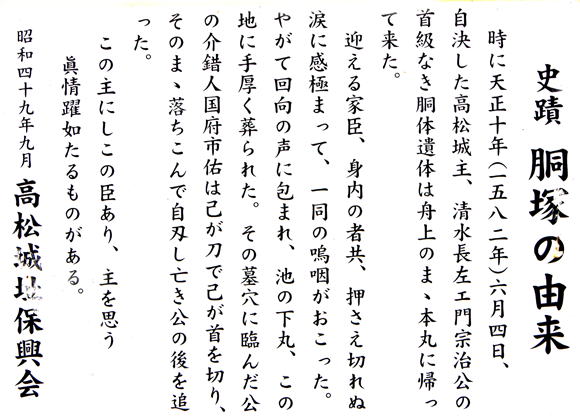 史蹟 胴塚の由来
時に天正十年(一五八二年)六月四日、
自決した高松城主、清水長左エ門宗治公の
首級なき胴体遺体は舟上のまゝ本丸に帰っ
て来た。
迎える家臣、身内の者共、押さえ切れぬ
涙に感極まって、一同の嗚咽がおこった。
やがて回向の声に包まれ、池の下丸、この
地に手厚く葬られた。その墓穴に臨んだ公
の介錯人国府市佑は己が刀で己が首を切り、
そのまゝ落ちこんで自刃し亡き公の後を追
った。
この主にしこの臣あり、主を思う
眞情躍如たるものがある。
昭和四十九年九月 高松城址保興会